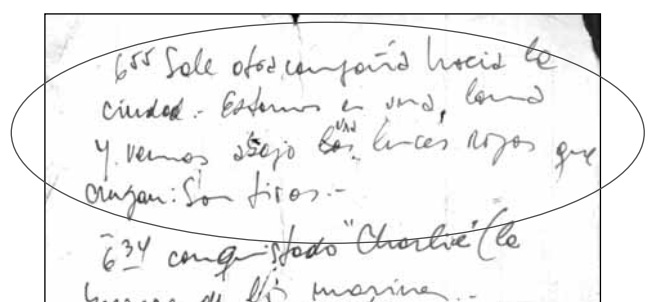 6⁵⁵ Sale otra compañia hacia la
ciudad.- Estamos en una, loma
y vemos abajo las una luces rojas que
cruzan: Son tiros.-
6³⁴ conquistado "Charlie" (la
de los marines..